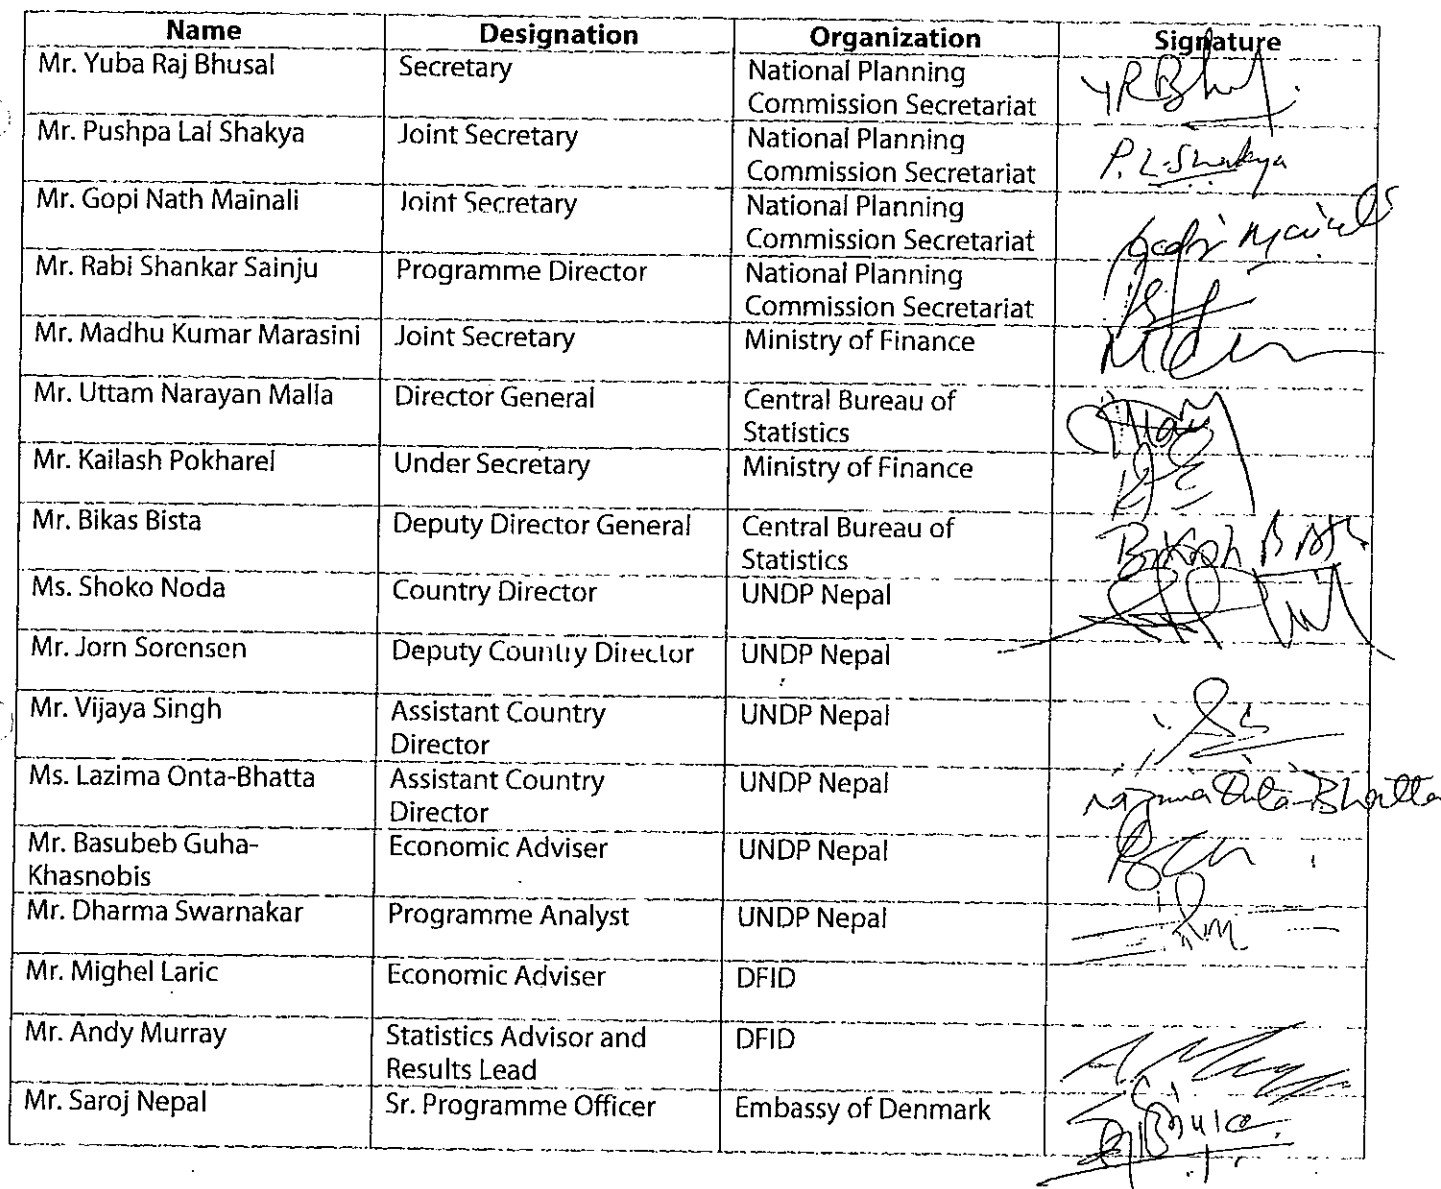 Name Designation Organization Signature
Mr. Yuba Raj Bhusal Secretary National Planning
Commission Secretariat YRBhusal
Mr. Pushpa Lal Shakya Joint Secretary National Planning
Commission Secretariat P.L. Shakya
Mr. Gopi Nath Mainali Joint Secretary National Planning
Commission Secretariat Gopi Mainali
Mr. Rabi Shankar Sainju Programme Director National Planning
Commission Secretariat
Mr. Madhu Kumar Marasini Joint Secretary Ministry of Finance
Mr. Uttam Narayan Malla Director General Central Bureau of
Statistics
Mr. Kailash Pokharel Under Secretary Ministry of Finance
Mr. Bikas Bista Deputy Director General Central Bureau of
Statistics
Ms. Shoko Noda Country Director UNDP Nepal
Mr. Jorn Sorensen Deputy Country Director UNDP Nepal
Mr. Vijaya Singh Assistant Country UNDP Nepal
Director
Ms. Lazima Onta-Bhatta Assistant Country UNDP Nepal Lazima Onta-Bhatta
Director
Mr. Basubeb Guha- Economic Adviser UNDP Nepal
Khasnobis
Mr. Dharma Swarnakar Programme Analyst UNDP Nepal
Mr. Mighel Laric Economic Adviser DFID
Mr. Andy Murray Statistics Advisor and DFID
Results Lead
Mr. Saroj Nepal Sr. Programme Officer Embassy of Denmark